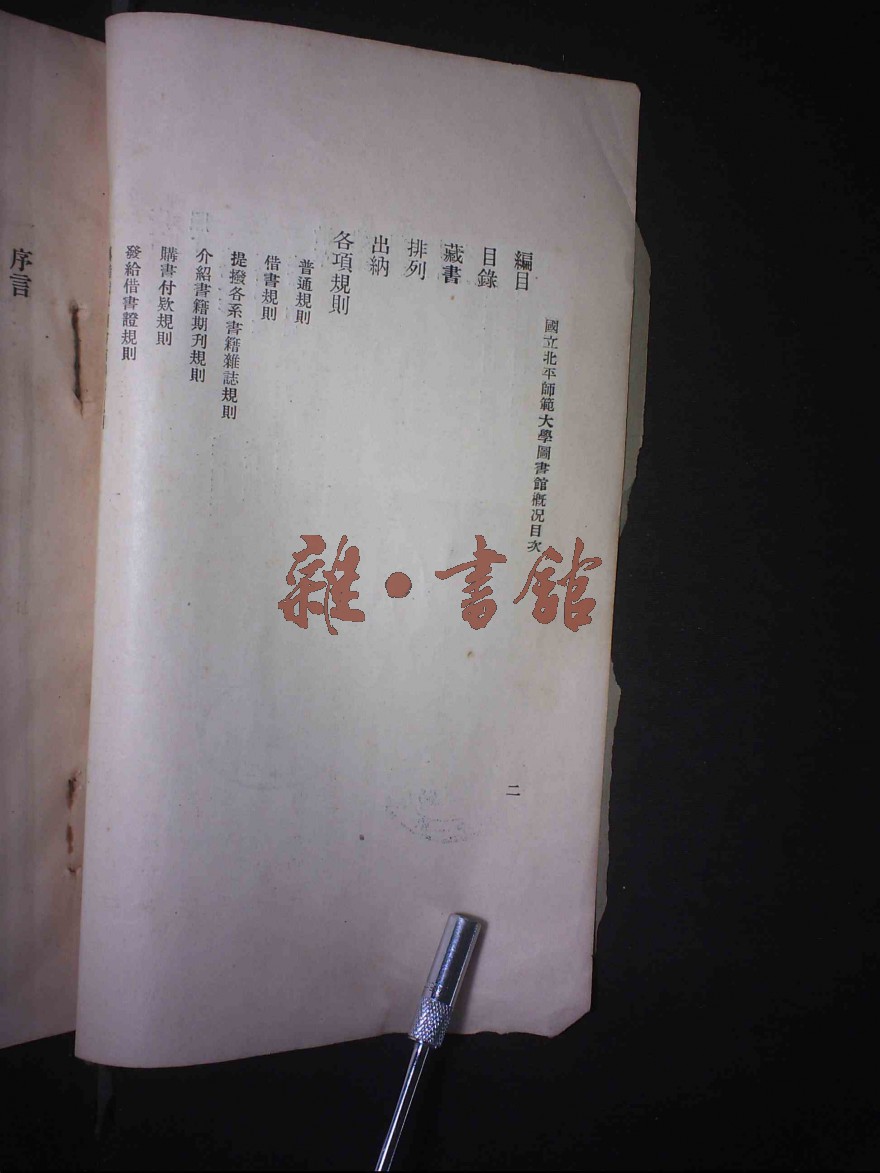 國立北平師範大學圖書館概況目次
二
編目
目錄
藏書
排列
出納
各項規則
普通規則
借書規則
提撥各系書籍雜誌規則
介紹書籍期刊規則
購書付欵規則
發給借書證規則
序言
雜·書館